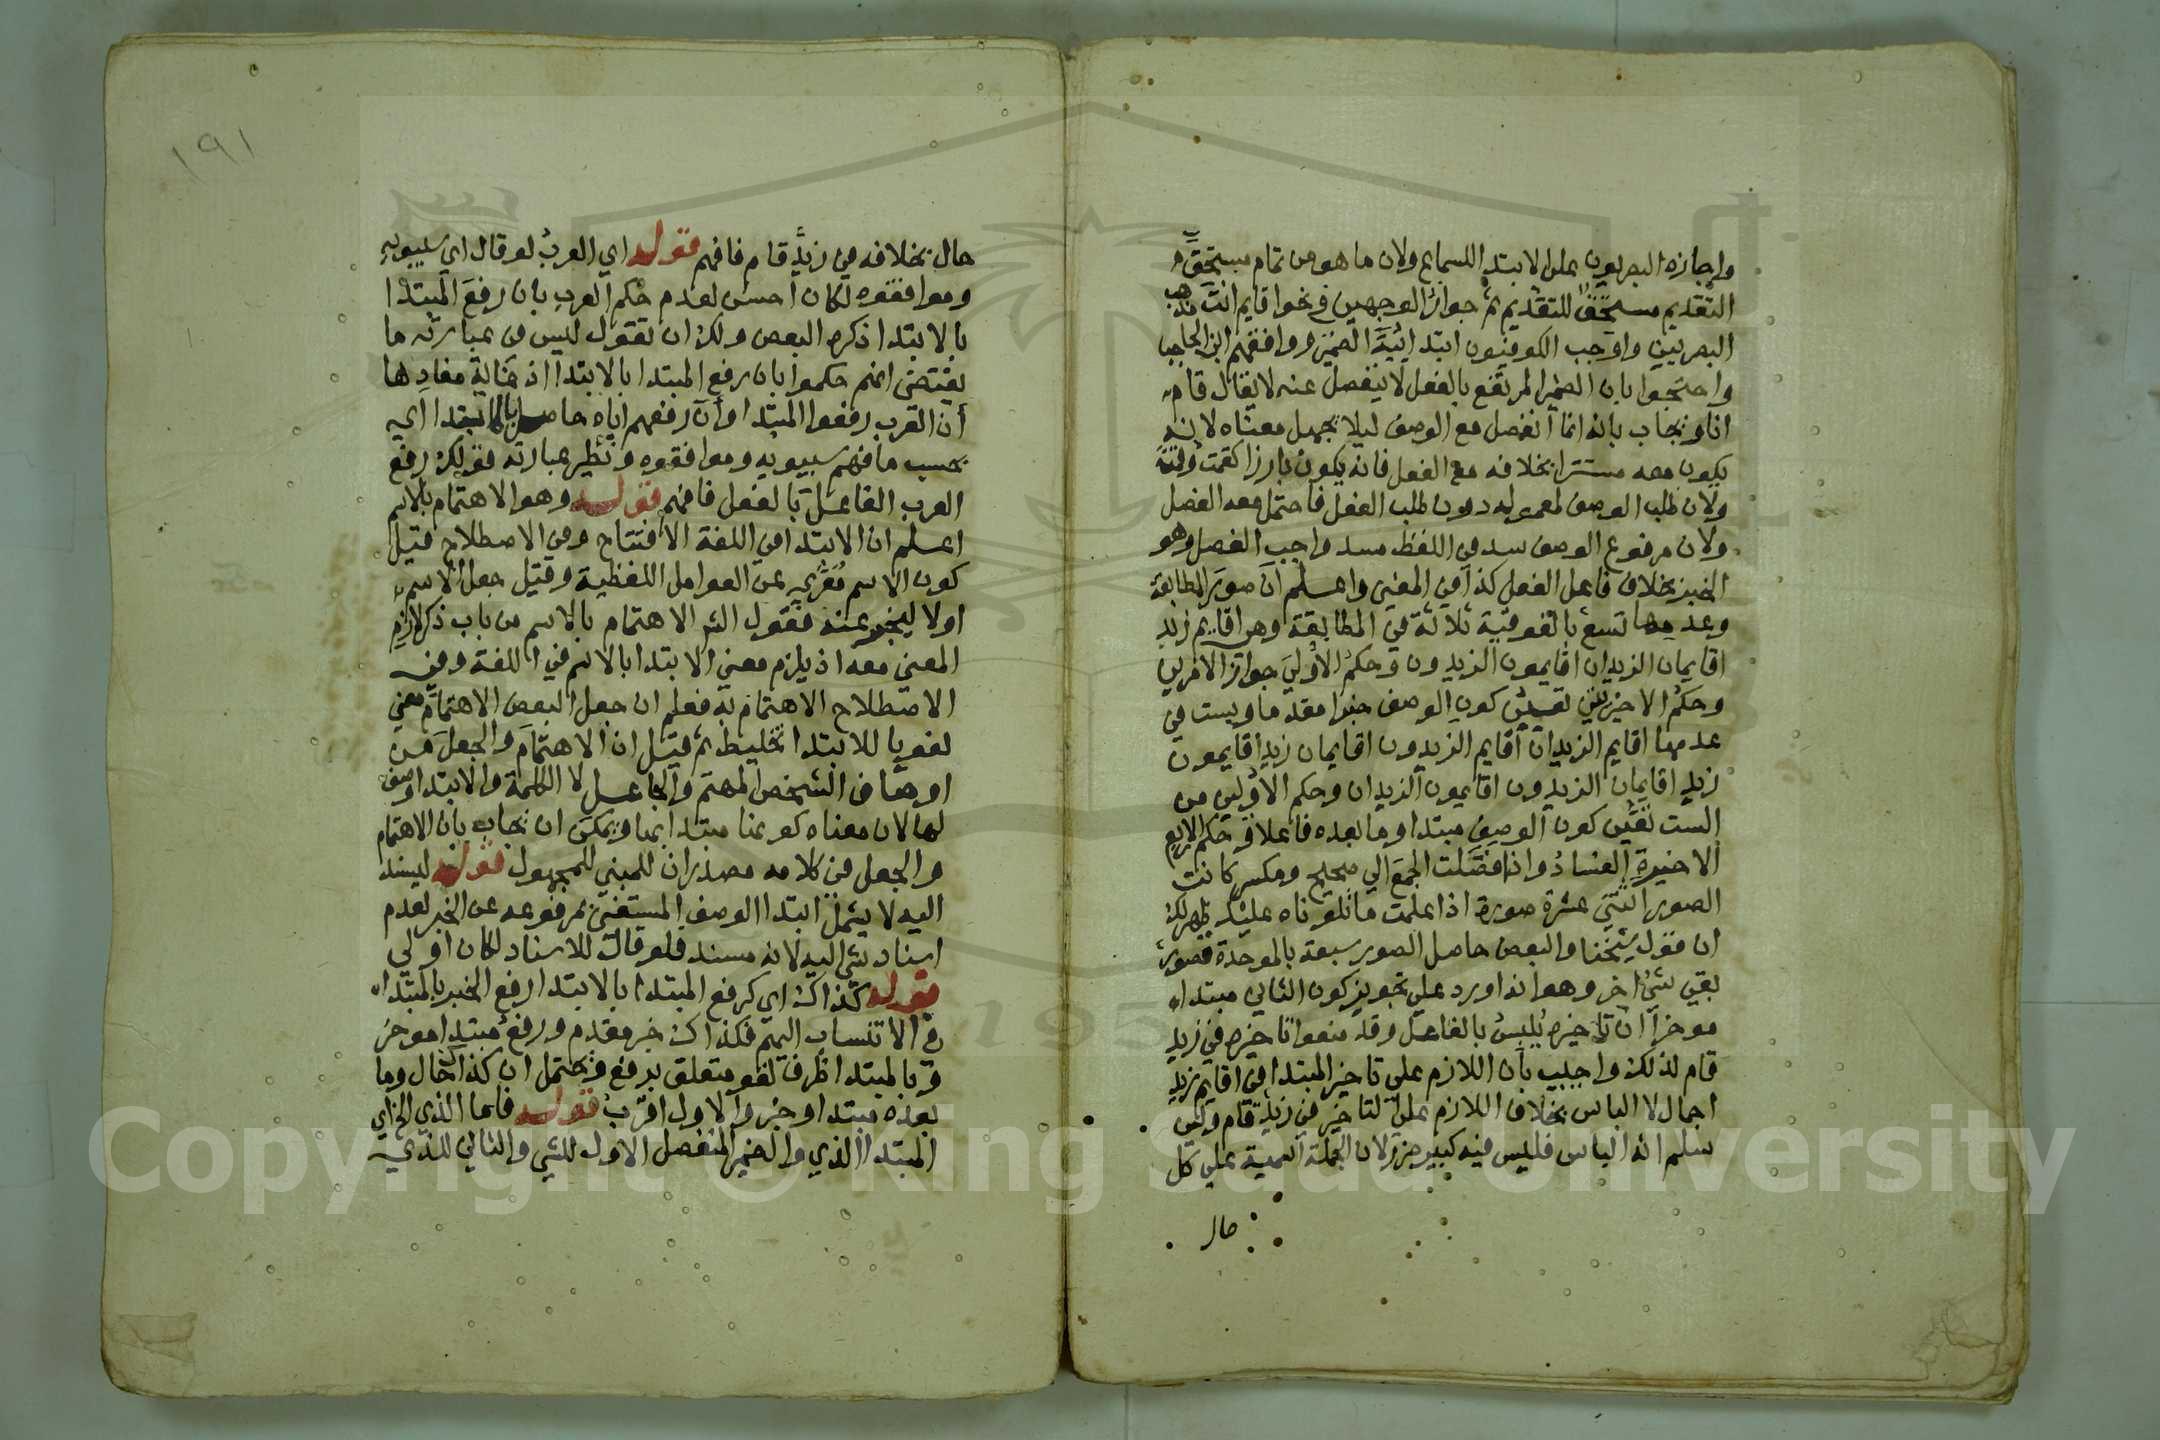 واجازه البصريون على الابتدا للسماع ولان ما هو من تمام مستحق
التقديم مستحق للتقديم ثم جواز الوجهين في نحو اقايم انت مذهب
البصريين واوجب الكوفيون ابتدائية الضمير ووافقهم ابن الحاجب
واحتجوا بان الضمير المرتفع بالفعل لا ينفصل عنه لا يقال قام
انا ويجاب بانه انما انفصل مع الوصف ليلا يجهل معناه لانه
يكون معه مستترا بخلافه مع الفعل فانه يكون بارزا كقمت وقمت
ولان طلب الوصف لمعموله دون طلب الفعل فاحتمل معه الفصل
ولان مرفوع الوصف سد في اللفظ مسد واجب الفصل وهو
الخبر بخلاف فاعل الفعل كذا في المغني واعلم ان صور المطابقة
وعدمها تسع بالفوقية ثلاثة في المطابقة وهي اقايم زيد
اقايمان الزيدان اقايمون الزيدون وحكم الاولى جواز الامرين
وحكم الاخيرتين تعين كون الوصف خبرا مقدما وست في
عدمها اقايم الزيدان اقايم الزيدون اقايمان زيد اقايمون
زيد اقايمان الزيدون اقايمون الزيدان وحكم الاوليين من
الست تعين كون الوصف مبتدا وما بعده فاعلا وحكم الاربع
الاخيرة الفساد واذا فصلت الجمع الى صحيح ومكسر كانت
الصور اثنتي عشرة صورة اذا علمت ما تلوناه عليك ظهر لك
ان قول شيخنا والبعض حاصل الصور سبعة بالموحدة قصور
بقي شي اخر وهو انه اورد على تجويز كون الثاني مبتدا
موخرا ان تاخيره يلبس بالفاعل وقد منعوا تاخيره في زيد
قام لذلك واجيب بان اللازم على تاخير المبتدا في اقايم زيد
اجمال لا الباس بخلاف اللازم على التاخير في زيد قام ولين
سلم انه الباس فليس فيه كبير ضرر لان الجملة اسمية على كل
حال
١٩١
حال بخلافه في زيد قام فافهم قوله اي العرب لو قال اي سيبويه
وموافقوه لكان احسن لعدم حكم العرب بان رفع المبتدا
بالابتدا ذكره البعض ولك ان تقول ليس في عبارته ما
يقتضي انهم حكموا بان رفع المبتدا بالابتدا اذ غاية مفادها
ان العرب رفعوا المبتدا وان رفعهم اياه حاصل بالابتدا اي
بحسب ما فهم سيبويه وموافقوه ونظير عبارته قولك رفع
العرب الفاعل بالفعل فافهم قوله وهو الاهتمام بالاسم
اعلم ان الابتدا في اللغة الافتتاح وفي الاصطلاح قيل
كون الاسم معرى عن العوامل اللفظية وقيل جعل الاسم
اولا ليخبر عنه فقول الشر الاهتمام بالاسم من باب ذكر لازم
المعنى معه اذ يلزم معنى الابتدا بالاسم في اللغة وفي
الاصطلاح الاهتمام به فعلم ان جعل البعض الاهتمام معنى
لغويا للابتدا تخليط ثم قيل ان الاهتمام والجعل من
اوصاف الشخص المهتم والجاعل لا الكلمة والابتدا وصف
لها لان معناه كو عنا مبتدا بها ويمكن ان يجاب بان الاهتمام
والجعل في كلامه مصدران للمبني للمجهول قوله ليسند
اليه لا يشمل ابتدا الوصف المستغني بمرفوعه عن الخبر لعدم
اسناد شي اليه لانه مسند فلو قال للاسناد لكان اولى
قوله كذاك اي كرفع المبتدا بالابتدا رفع الخبر بالمبتدا
في الانتساب اليهم فكذاك خبر مقدم ورفع مبتدا موخر
وبالمبتدا ظرف لغو متعلق برفع ويحتمل ان كذاك حال وما
بعده مبتدا وخبر والاول اقرب قوله فاما الذي الخ اي
المبتدا الذي والضمير المنفصل الاول للشي والثاني للذي